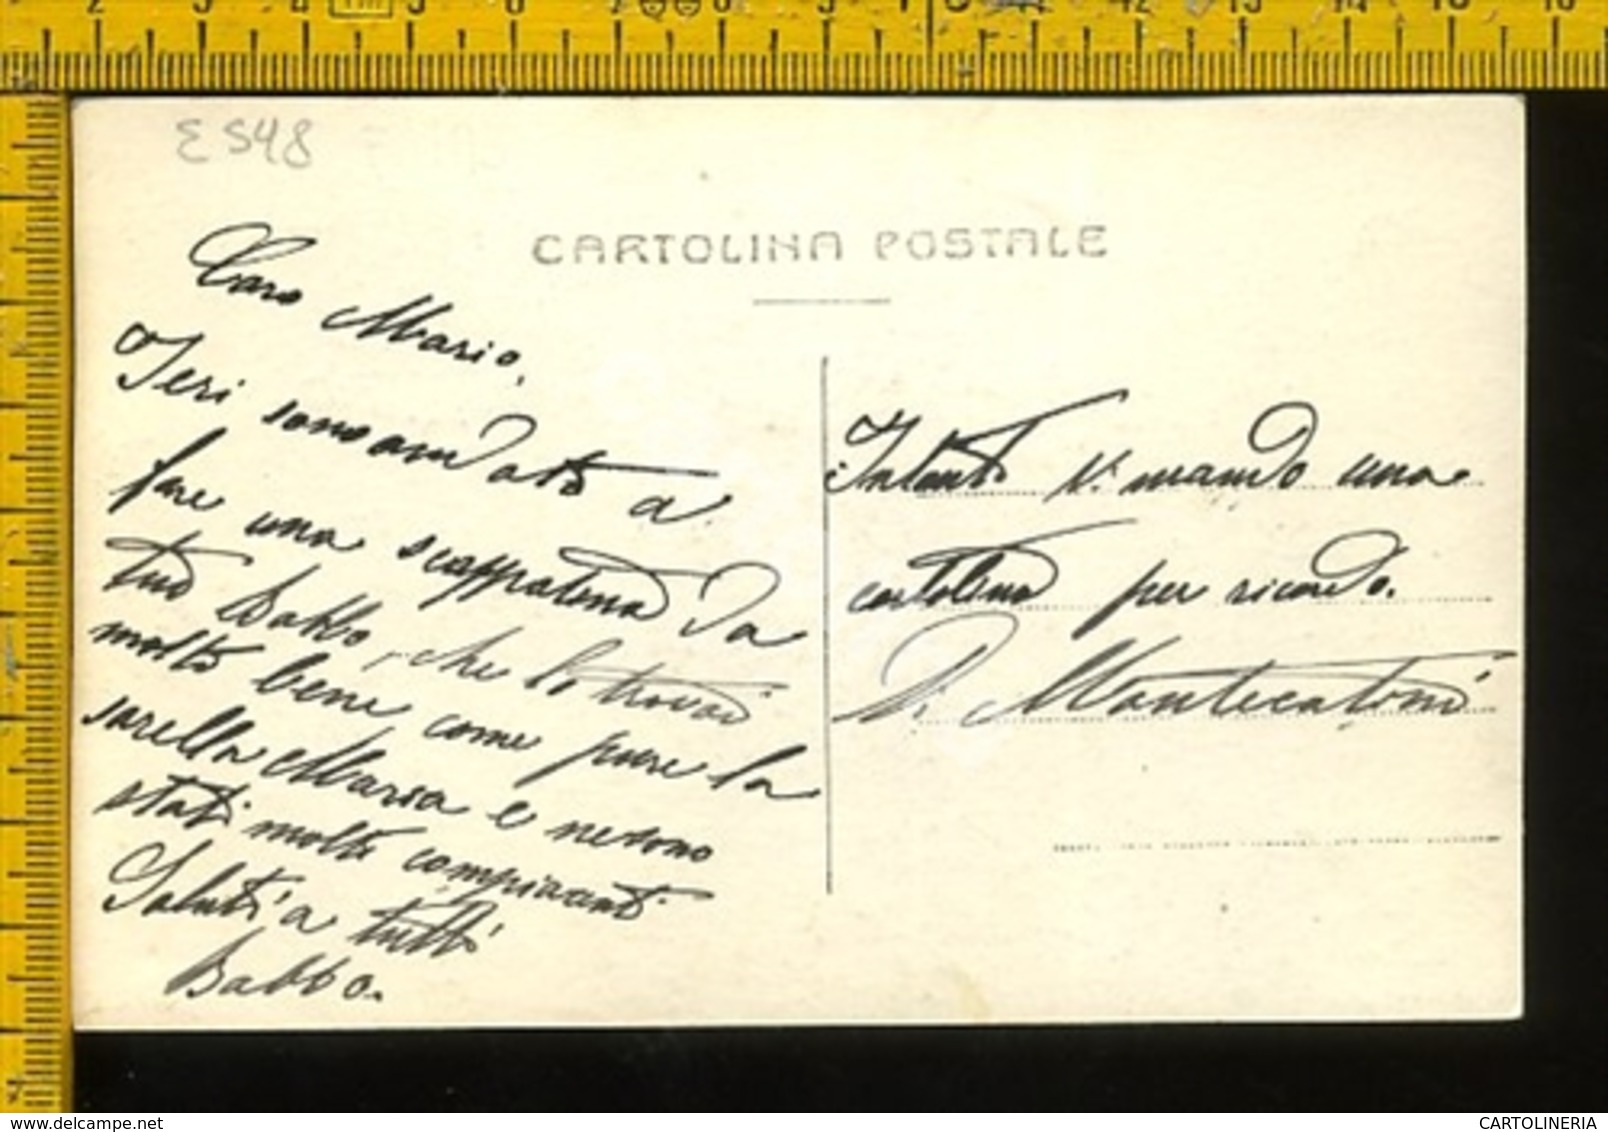 E 548
CARTOLINA POSTALE
Caro Mario,
Ieri sono andato a
fare una scappatina da
tuo Babbo, che lo trovai
molto bene come pure la
sorella Maria e ne sono
stati molto
Saluti a tutti
Babbo.
Intanto Vi mando una
cartolina per ricordo.
Di Montecatini
delcampe.net
CARTOLINERIA